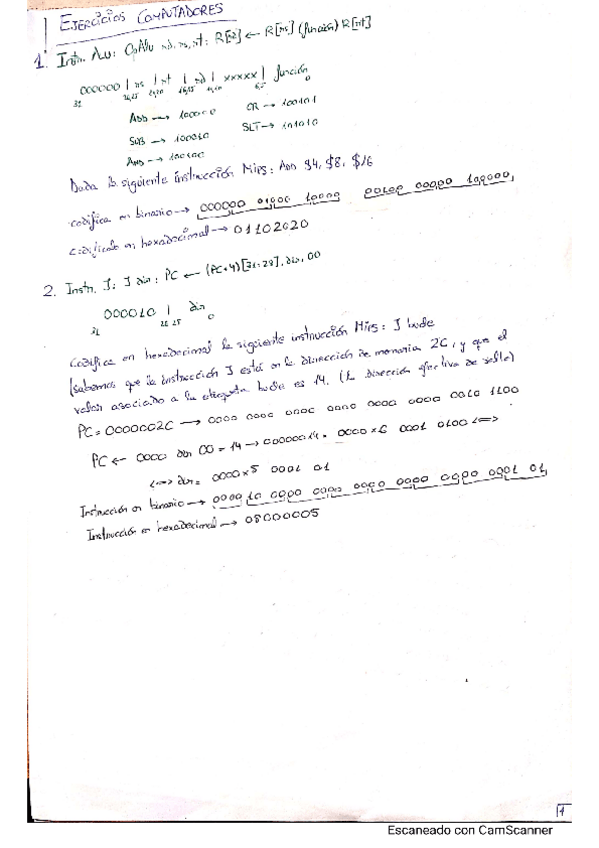 EJERCICIOS COMPUTADORES
1. Instr. ALU: OpAlu rd, rs, rt: R[rd] ← R[rs] (función) R[rt]
000000 | rs | rt | rd | xxxxx | función
31 26,25 21,20 16,15 11,10 6,5 0
ADD → 100000 OR → 100101
SUB → 100010 SLT → 101010
AND → 100100
Dada la siguiente instrucción Mips: ADD $4, $8, $16
codifica en binario → 000000 01000 10000 00100 00000 100000
codifícalo en hexadecimal → 01102020
2. Instr. J: J dir: PC ← (PC+4)[31:28], dir, 00
000010 | dir
31 26 25 0
Codifica en hexadecimal la siguiente instrucción Mips: J bucle
(sabemos que la instrucción J está en la dirección de memoria 2C, y que el
valor asociado a la etiqueta bucle es 14. (la dirección efectiva de salto)
PC = 0000002C → 0000 0000 0000 0000 0000 0000 0010 1100
PC ← 0000 dir 00 = 14 → 00000014 = 0000x6 0001 0100 <=>
<=> dir = 0000x5 0001 01
Instrucción en binario → 0000 10 0000 0000 0000 0000 0000 0001 01
Instrucción en hexadecimal → 08000005
1
Escaneado con CamScanner